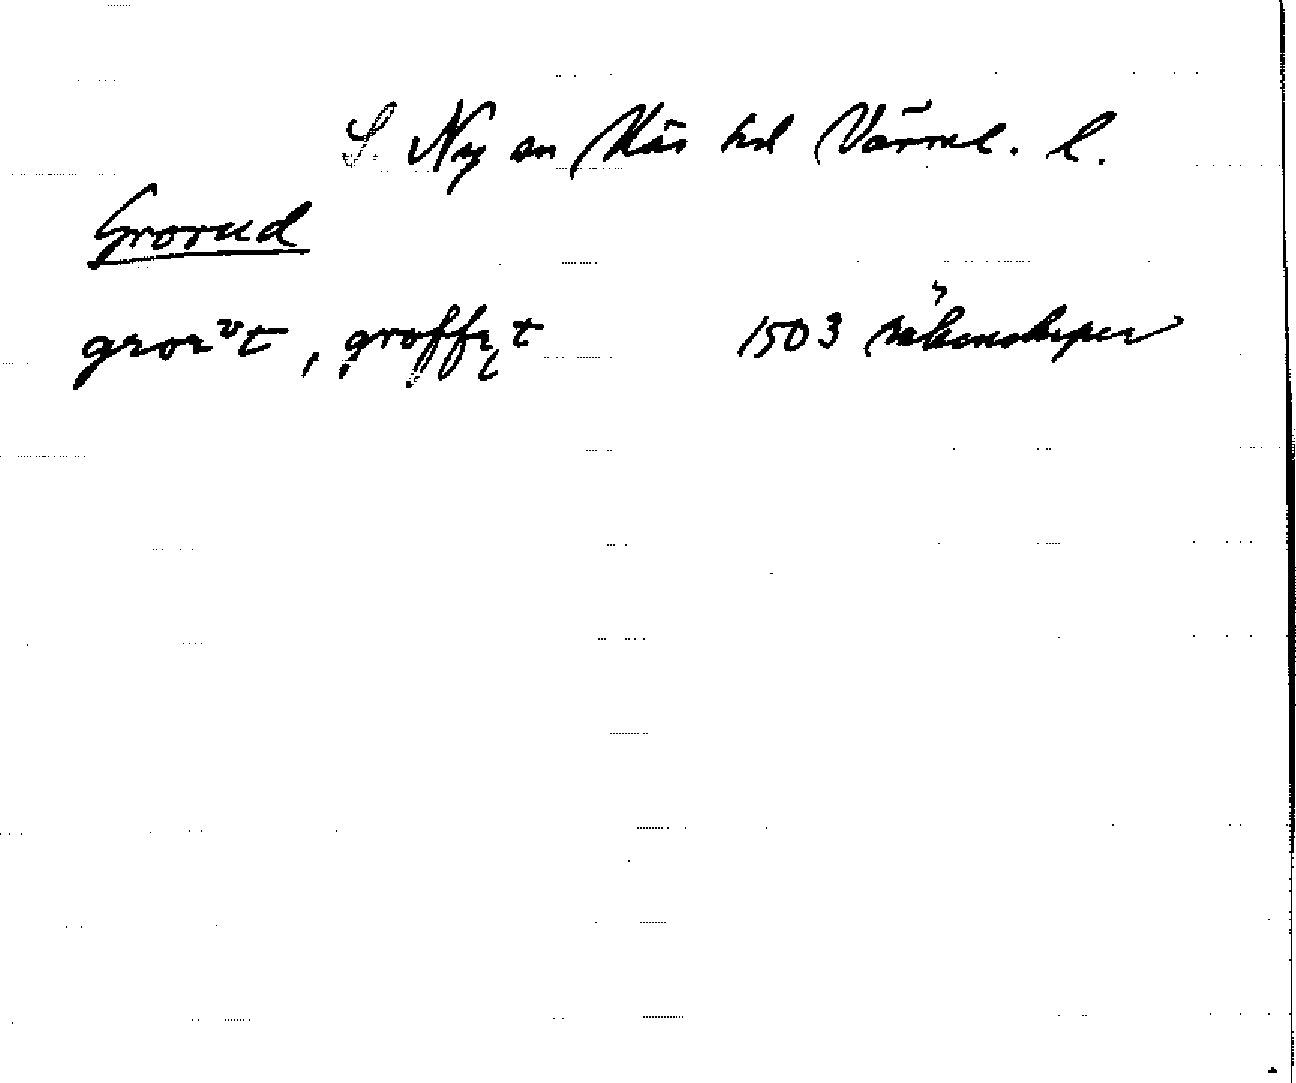 S. Ny sn Näs hd Värml. l.
Grorud
grorᵛt, groffet 1503 räkenskaper